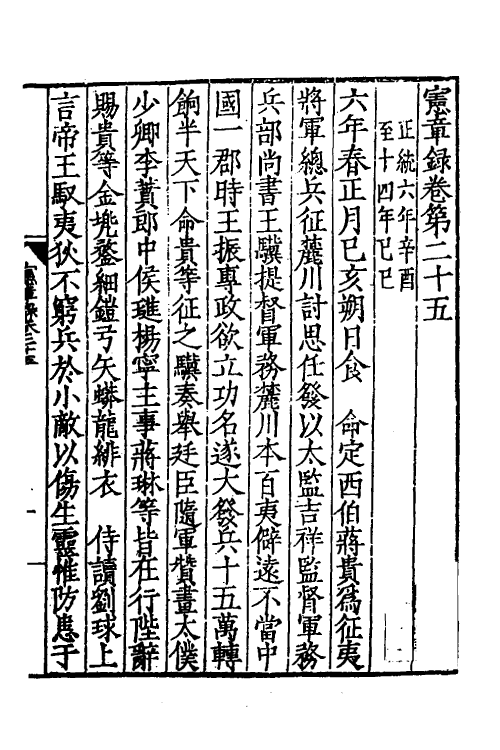 憲章録卷第二十五
正統六年辛酉
至十四年己巳
六年春正月己亥朔日食　命定西伯蔣貴爲征夷
將軍總兵征麓川討思任發以太監吉祥監督軍務
兵部尚書王驥提督軍務麓川本百夷僻遠不當中
國一郡時王振專政欲立功名遂大發兵十五萬轉
餉半天下命貴等征之驥奏舉廷臣隨軍贊畫太僕
少卿李蕡郎中侯璡楊寧主事蔣琳等皆在行陛辭
賜貴等金兠鍪細鎧弓矢蟒龍緋衣　侍讀劉球上
言帝王馭夷狄不窮兵於小敵以傷生靈惟防患于
憲章録卷二十五
一